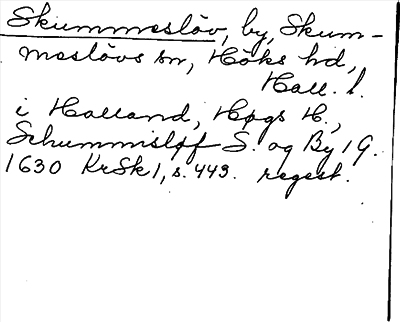 Skummeslöv, by, Skum-
meslövs sn, Höks hd,
Hall. l.
i Halland, Høgs H.,
Schummisløf S. og By 1 G.
1630 KrSk 1, s. 443. regest.